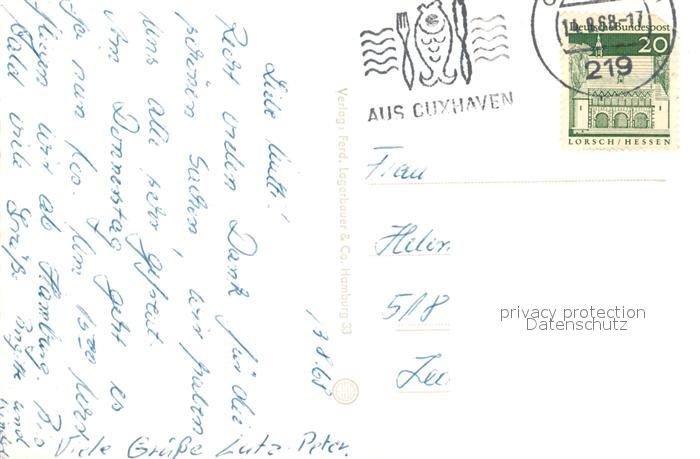 13.8.68
Liebe Mutti!
Recht vielen Dank für die
schönen Sachen, wir haben
uns alle sehr gefreut.
Am Donnerstag geht es
ja nun los. Um 15.00
fliegen wir ab Hamburg. Bis
bald viele Grüße Brigitte und
Viele Grüße Lutz-Peter.
Verlag: Ferd. Lagerbauer & Co. Hamburg 33
AUS CUXHAVEN
14.8.68-17
219
Deutsche Bundespost
20
LORSCH/HESSEN
Frau
518
privacy protection
Datenschutz